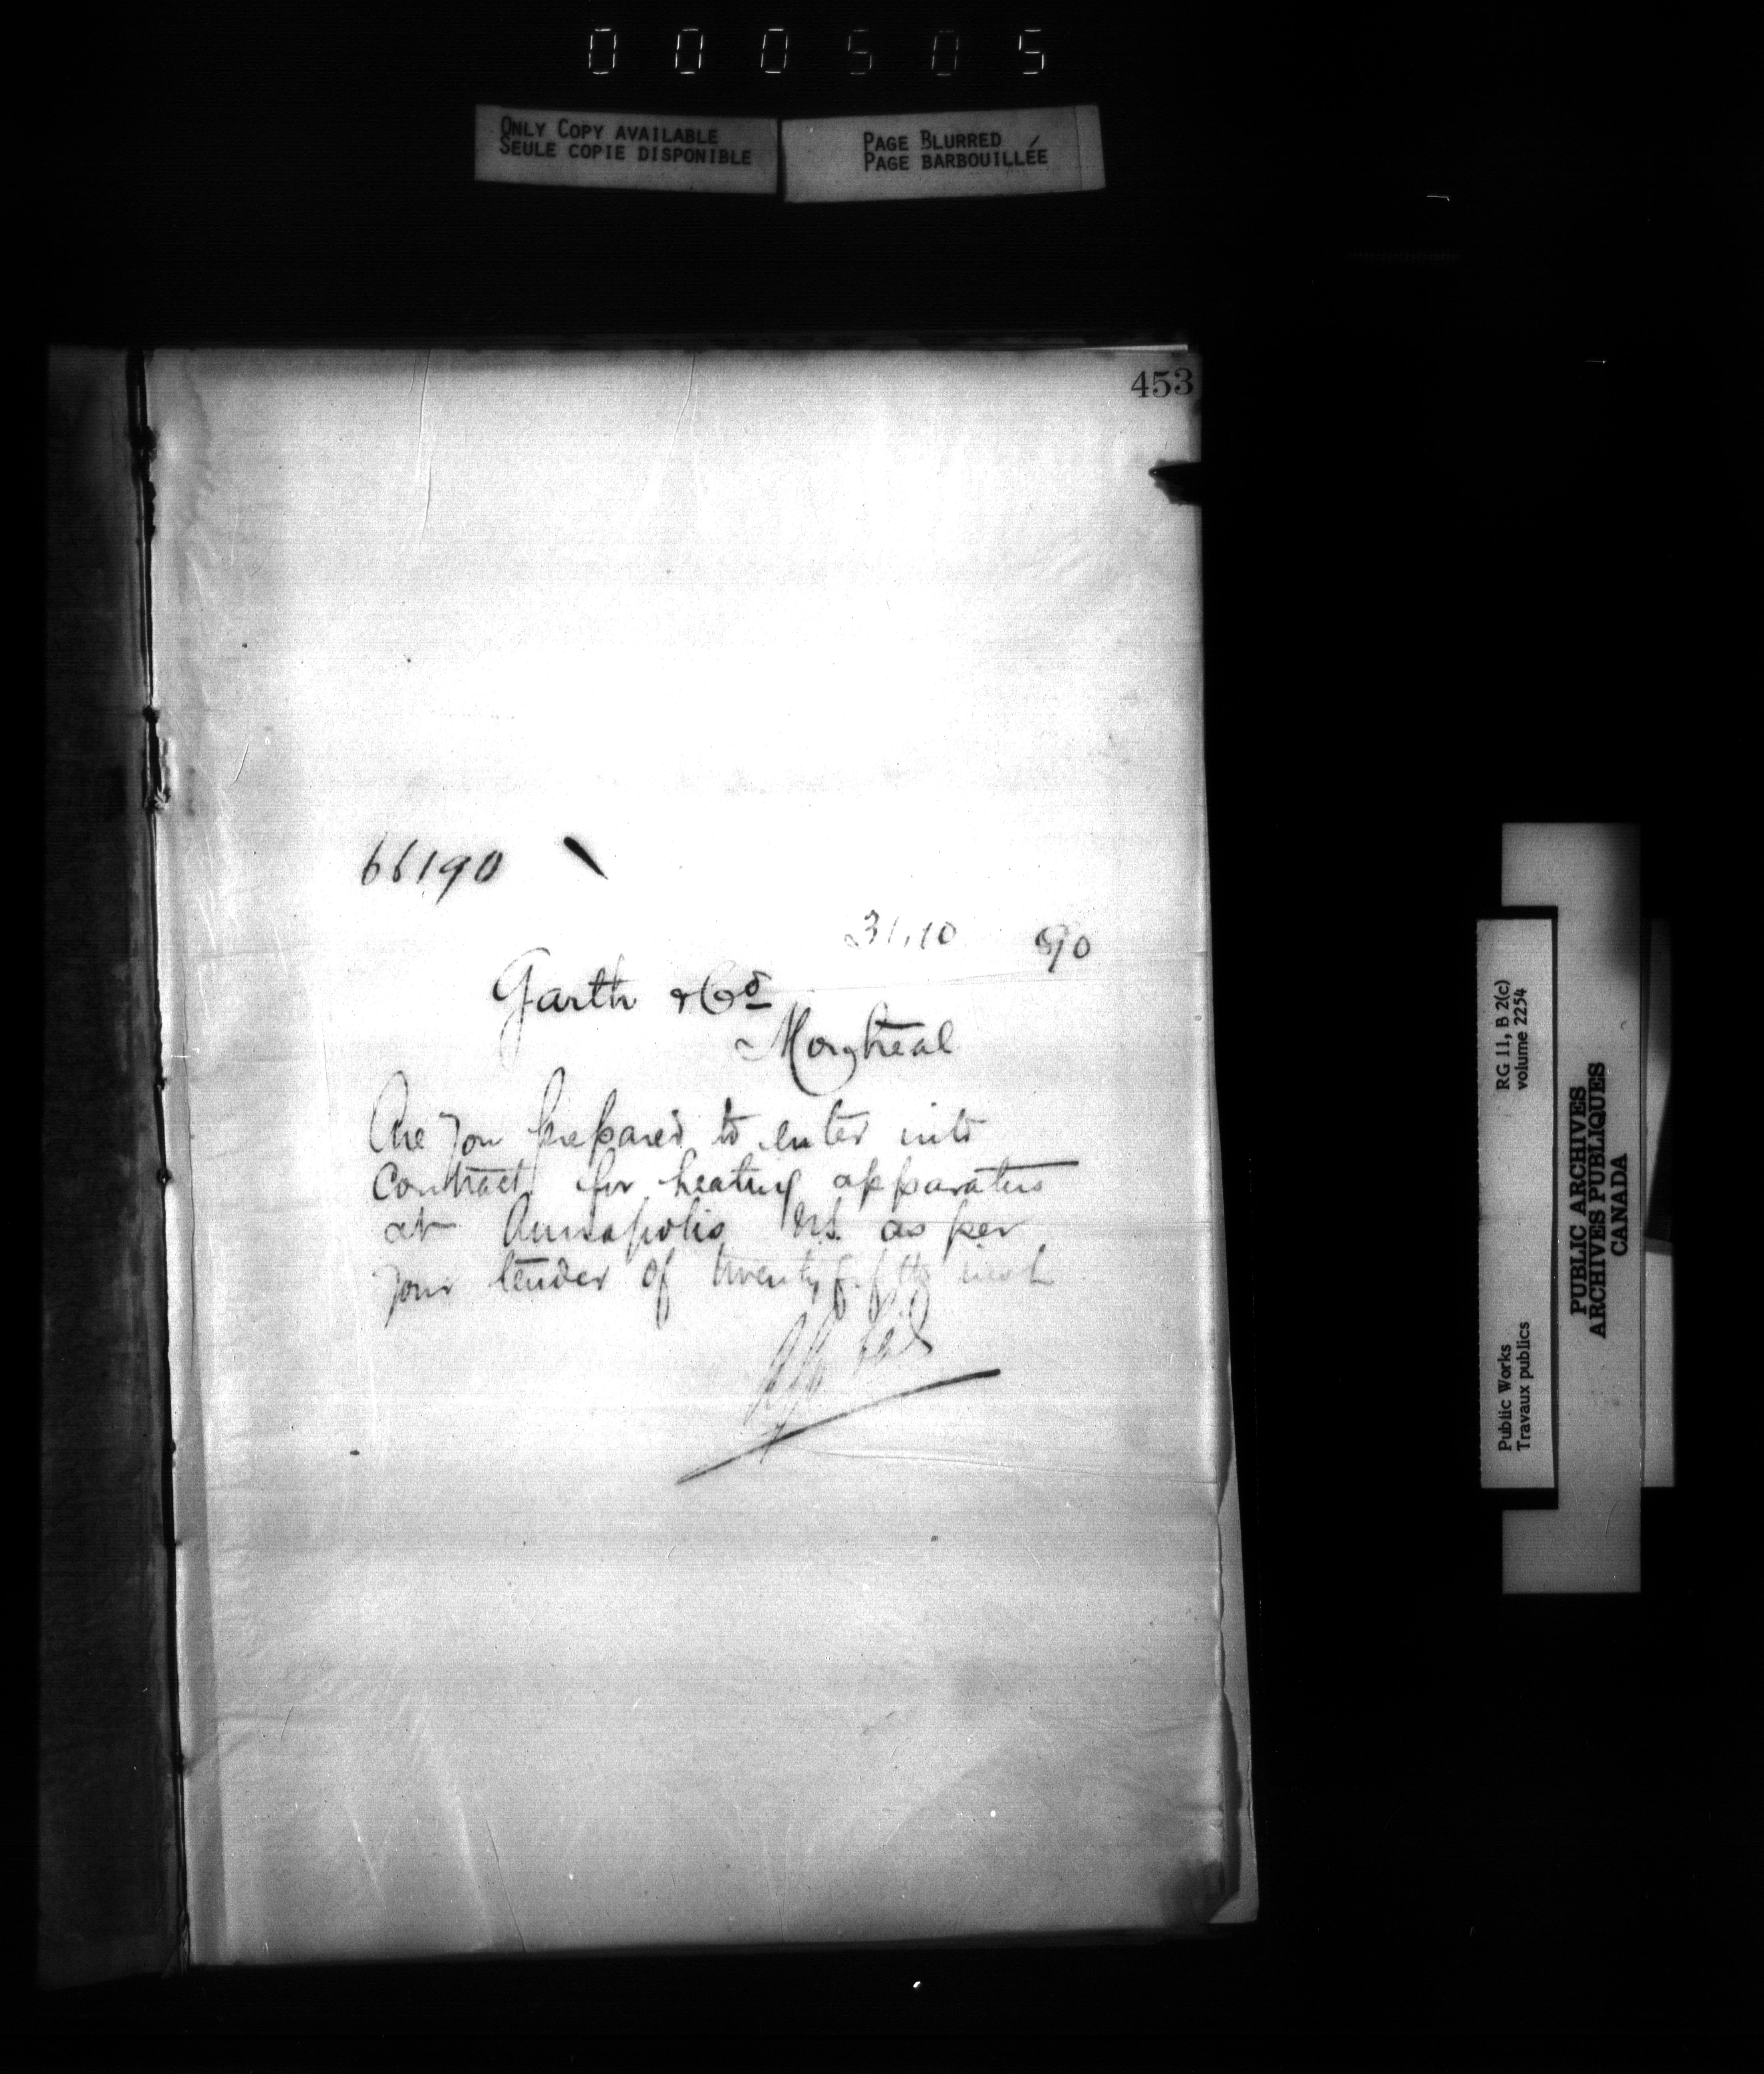 000505
ONLY COPY AVAILABLE
SEULE COPIE DISPONIBLE
PAGE BLURRED
PAGE BARBOUILLÉE
453
66190
31.10 90
Garth & Co
Montreal
Are you prepared to enter into
contract for heating apparatus
at Annapolis N.S. as per
your tender of twenty fifth inst
RG 11, B 2(c)
volume 2254
Public Works
Travaux publics
PUBLIC ARCHIVES
ARCHIVES PUBLIQUES
CANADA